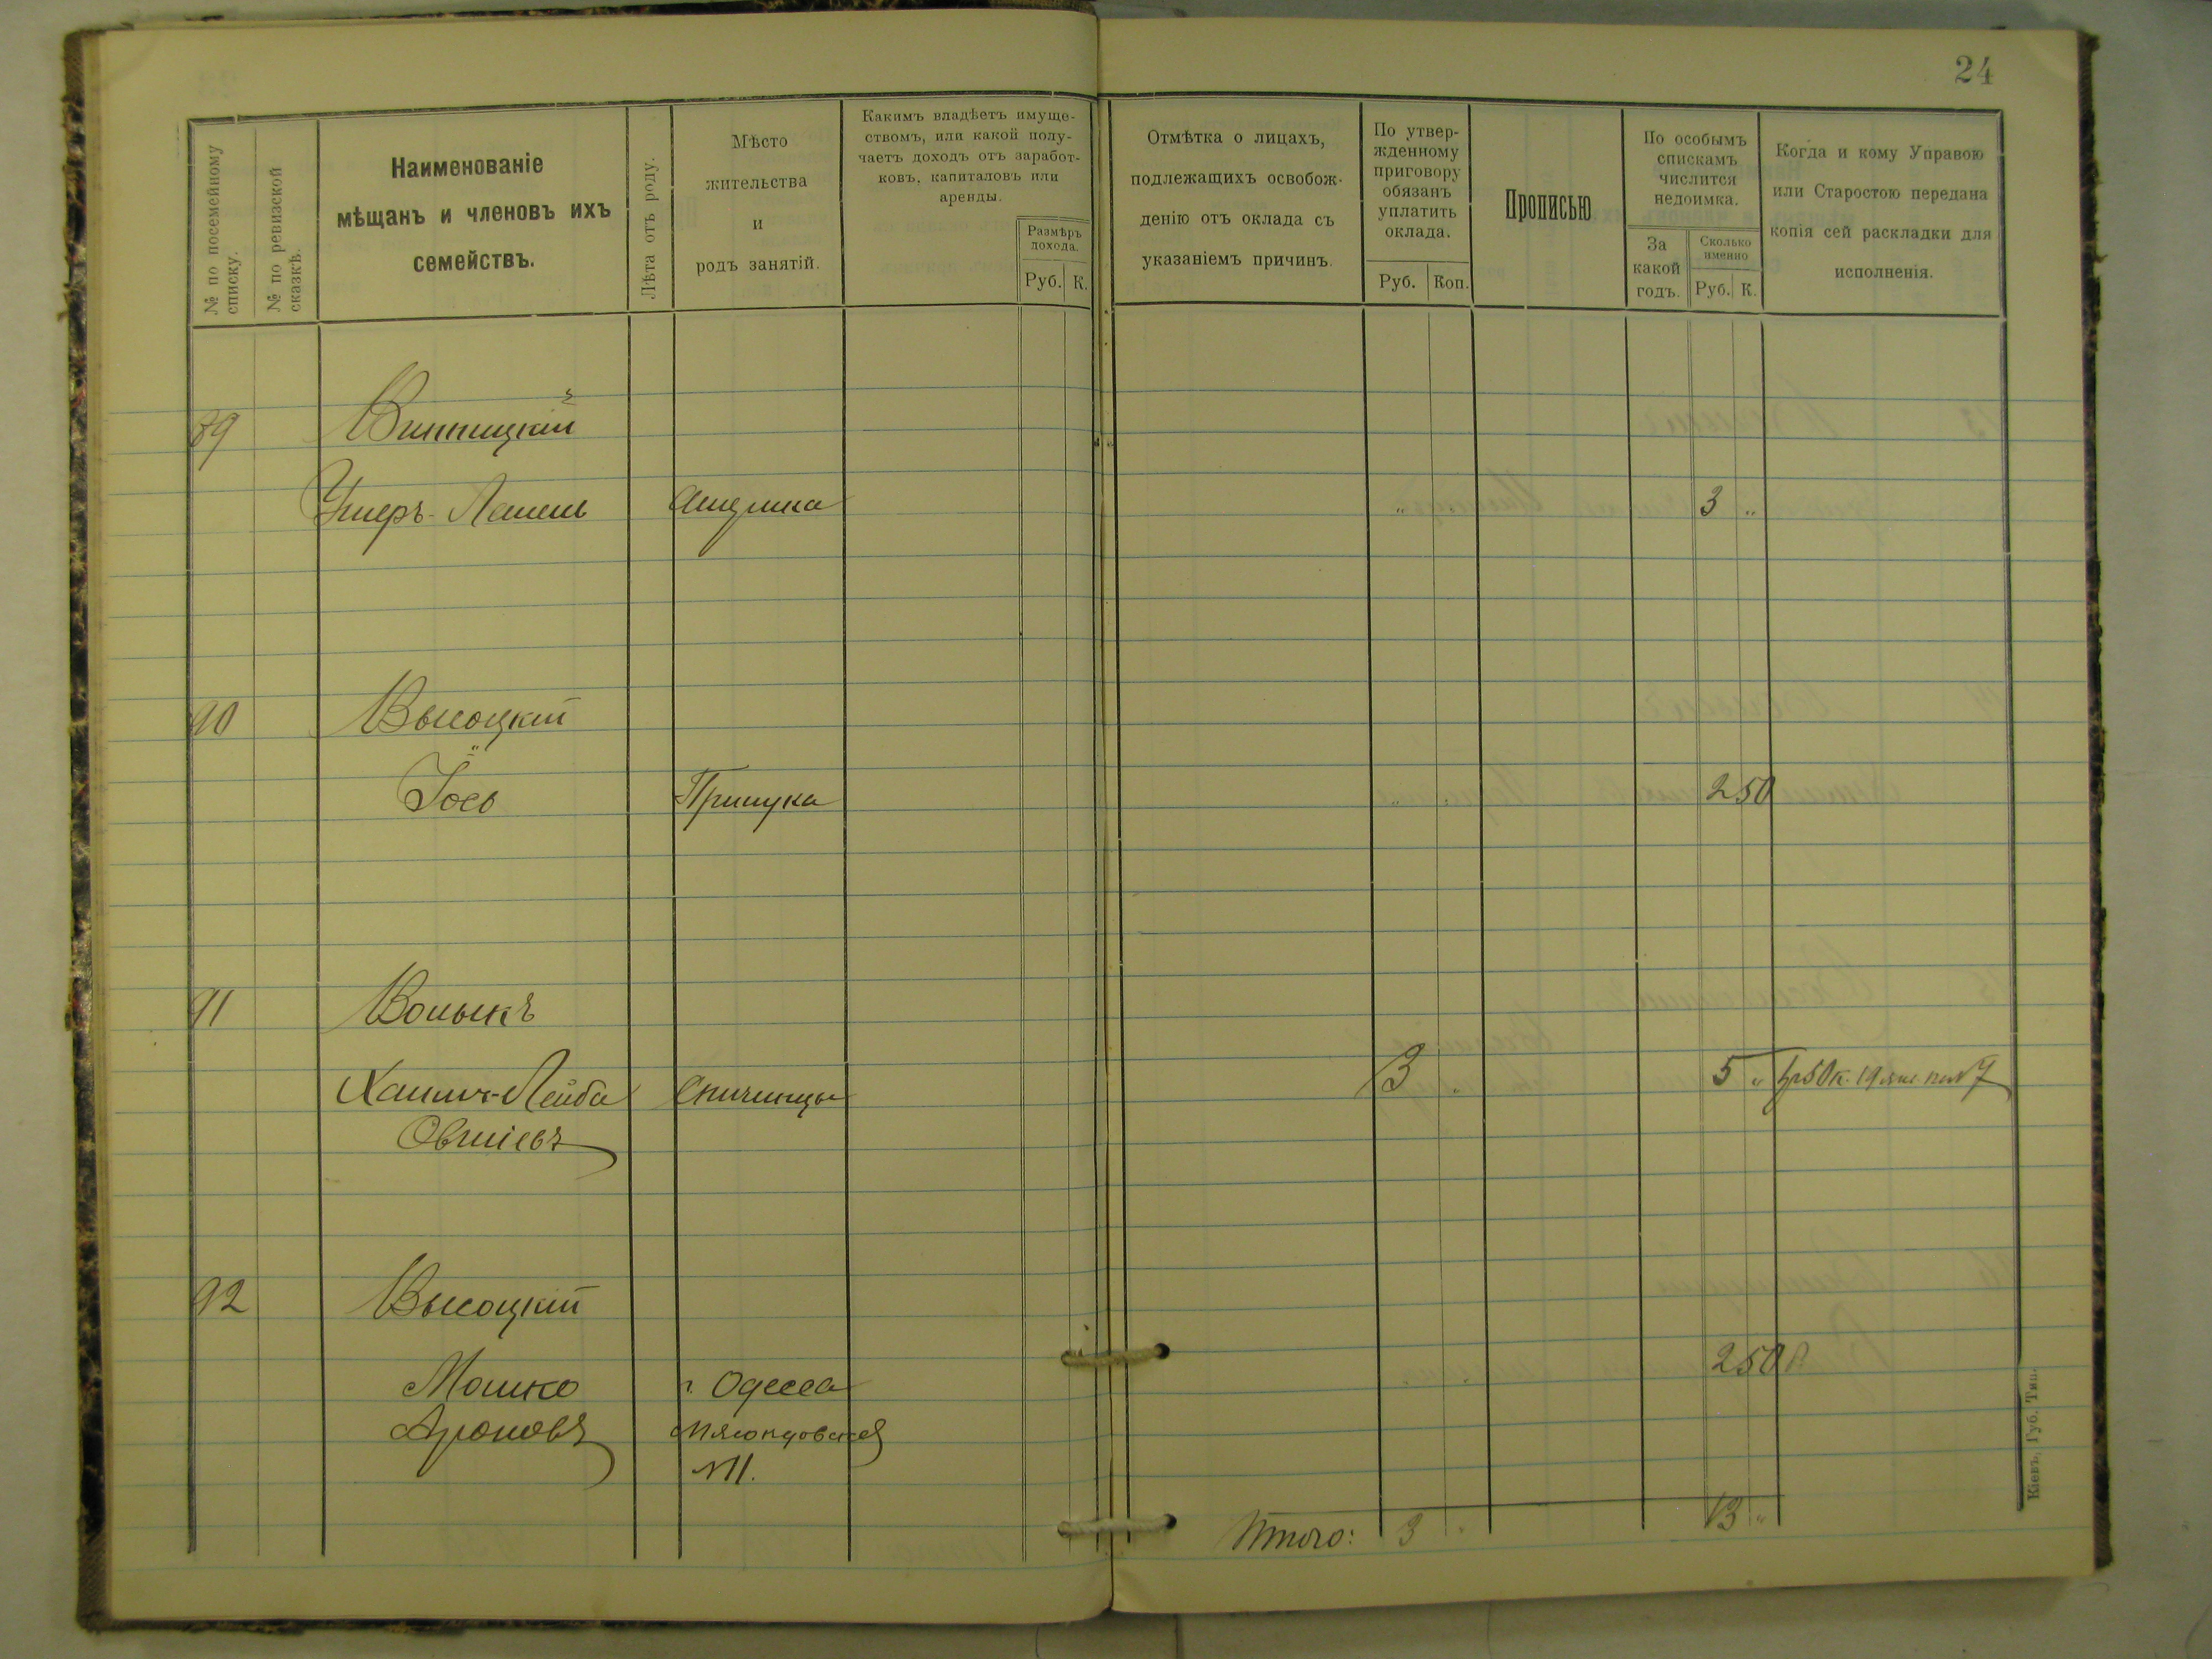 24
№ по посемейному списку.
№ по ревизской сказкѣ.
Наименованіе
мѣщанъ и членовъ ихъ
семействъ.
Лѣта отъ роду.
Мѣсто
жительства
и
родъ занятій.
Какимъ владѣетъ имуще-
ствомъ, или какой полу-
чаетъ доходъ отъ заработ-
ковъ, капиталовъ или
аренды.
Размѣръ
дохода.
Руб. К.
Отмѣтка о лицахъ,
подлежащихъ освобож-
денію отъ оклада съ
указаніемъ причинъ.
По утвер-
жденному
приговору
обязанъ
уплатить
оклада.
Руб. Коп.
Прописью
По особымъ
спискамъ
числится
недоимка.
За
какой
годъ.
Сколько
именно
Руб. К.
Когда и кому Управою
или Старостою передана
копія сей раскладки для
исполненія.
89 Винницкій
Ушеръ- " 3 "
90 Высоцкій
Іось Прилука " " 2 50
91
Хаимъ-Лейба Спичинцы 3 " 5 "
Овшіевъ
92 Высоцкій
Мошко г. Одесса 2 50
Ароновъ
№ 11.
Итого: 3 " 13 "
Кіевъ, Губ. Тип.